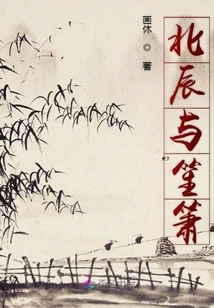 北辰与笙箫
画休◎著